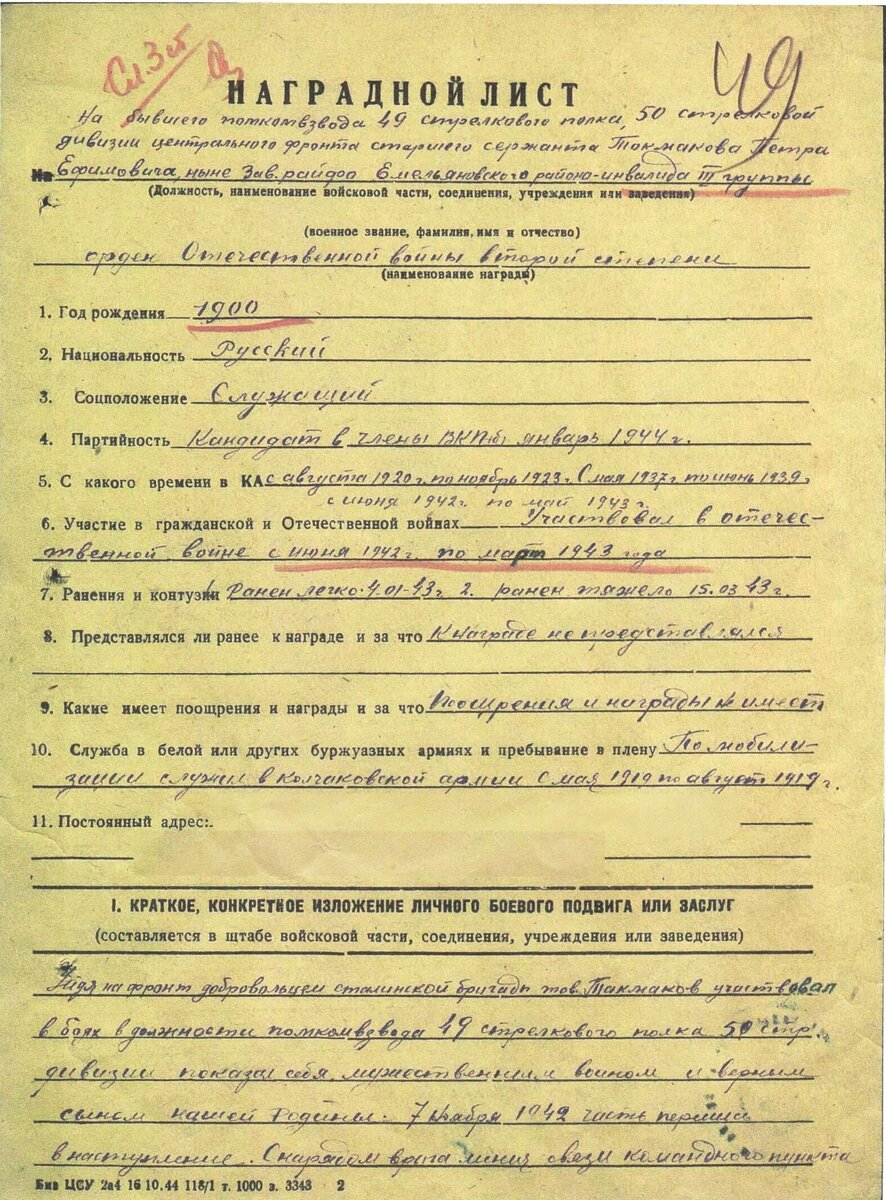 Сл. 3 ст
49
НАГРАДНОЙ ЛИСТ
На бывшего помкомвзвода 49 стрелкового полка, 50 стрелковой
дивизии центрального фронта старшего сержанта Токмакова Петра
На Ефимовича, ныне Зав. райфо Емельяновского района-инвалида III группы
(Должность, наименование войсковой части, соединения, учреждения или заведения)
(военное звание, фамилия, имя и отчество)
орден Отечественной войны второй степени
(наименование награды)
1. Год рождения 1900
2. Национальность Русский
3. Соцположение Служащий
4. Партийность Кандидат в члены ВКП(б) январь 1944 г.
5. С какого времени в КА с августа 1920 г. по ноябрь 1923 г. С мая 1937 г по июнь 1939 г
с июня 1942 г. по май 1943 г.
6. Участие в гражданской и Отечественной войнах Участвовал в отечес-
твенной войне с июня 1942 г. по март 1943 года
7. Ранения и контузии Ранен легко 4.01-43 г. 2. ранен тяжело 15.03.43 г.
8. Представлялся ли ранее к награде и за что К награде не представлялся
9. Какие имеет поощрения и награды и за что Поощрения и награды не имеет
10. Служба в белой или других буржуазных армиях и пребывание в плену По мобили-
зации служил в Колчаковской армии с мая 1919 по август 1919 г.
11. Постоянный адрес:
I. КРАТКОЕ, КОНКРЕТНОЕ ИЗЛОЖЕНИЕ ЛИЧНОГО БОЕВОГО ПОДВИГА ИЛИ ЗАСЛУГ
(составляется в штабе войсковой части, соединения, учреждения или заведения)
Идя на фронт добровольцем сталинской бригады тов. Такмаков участвовал
в боях в должности помкомвзвода 49 стрелкового полка 50 стр.
дивизии показал себя мужественным воином и верным
сыном нашей Родины. 7 Ноября 1942 часть перешла
в наступление. Снарядом врага линия связи командного пункта
Бив ЦСУ 2а4 16 10.44 118/1 т. 1000 з. 3343 2